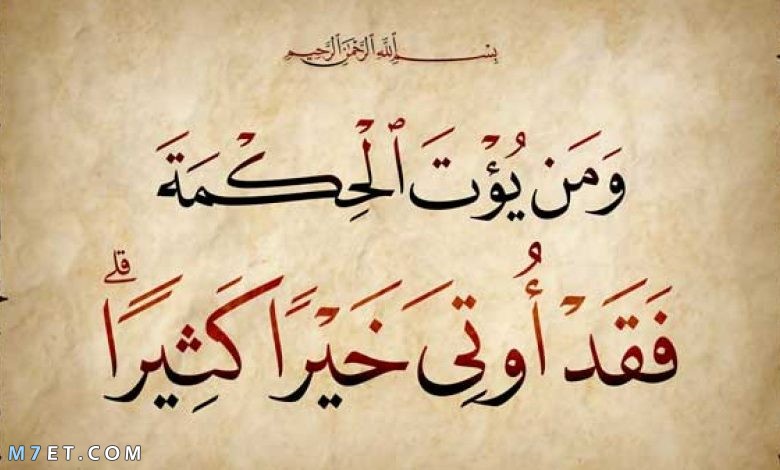 بِسْمِ ٱللَّهِ ٱلرَّحْمَٰنِ ٱلرَّحِيمِ
وَمَن يُؤْتَ ٱلْحِكْمَةَ
فَقَدْ أُوتِىَ خَيْرًا كَثِيرًا ۗ
M7ET.COM